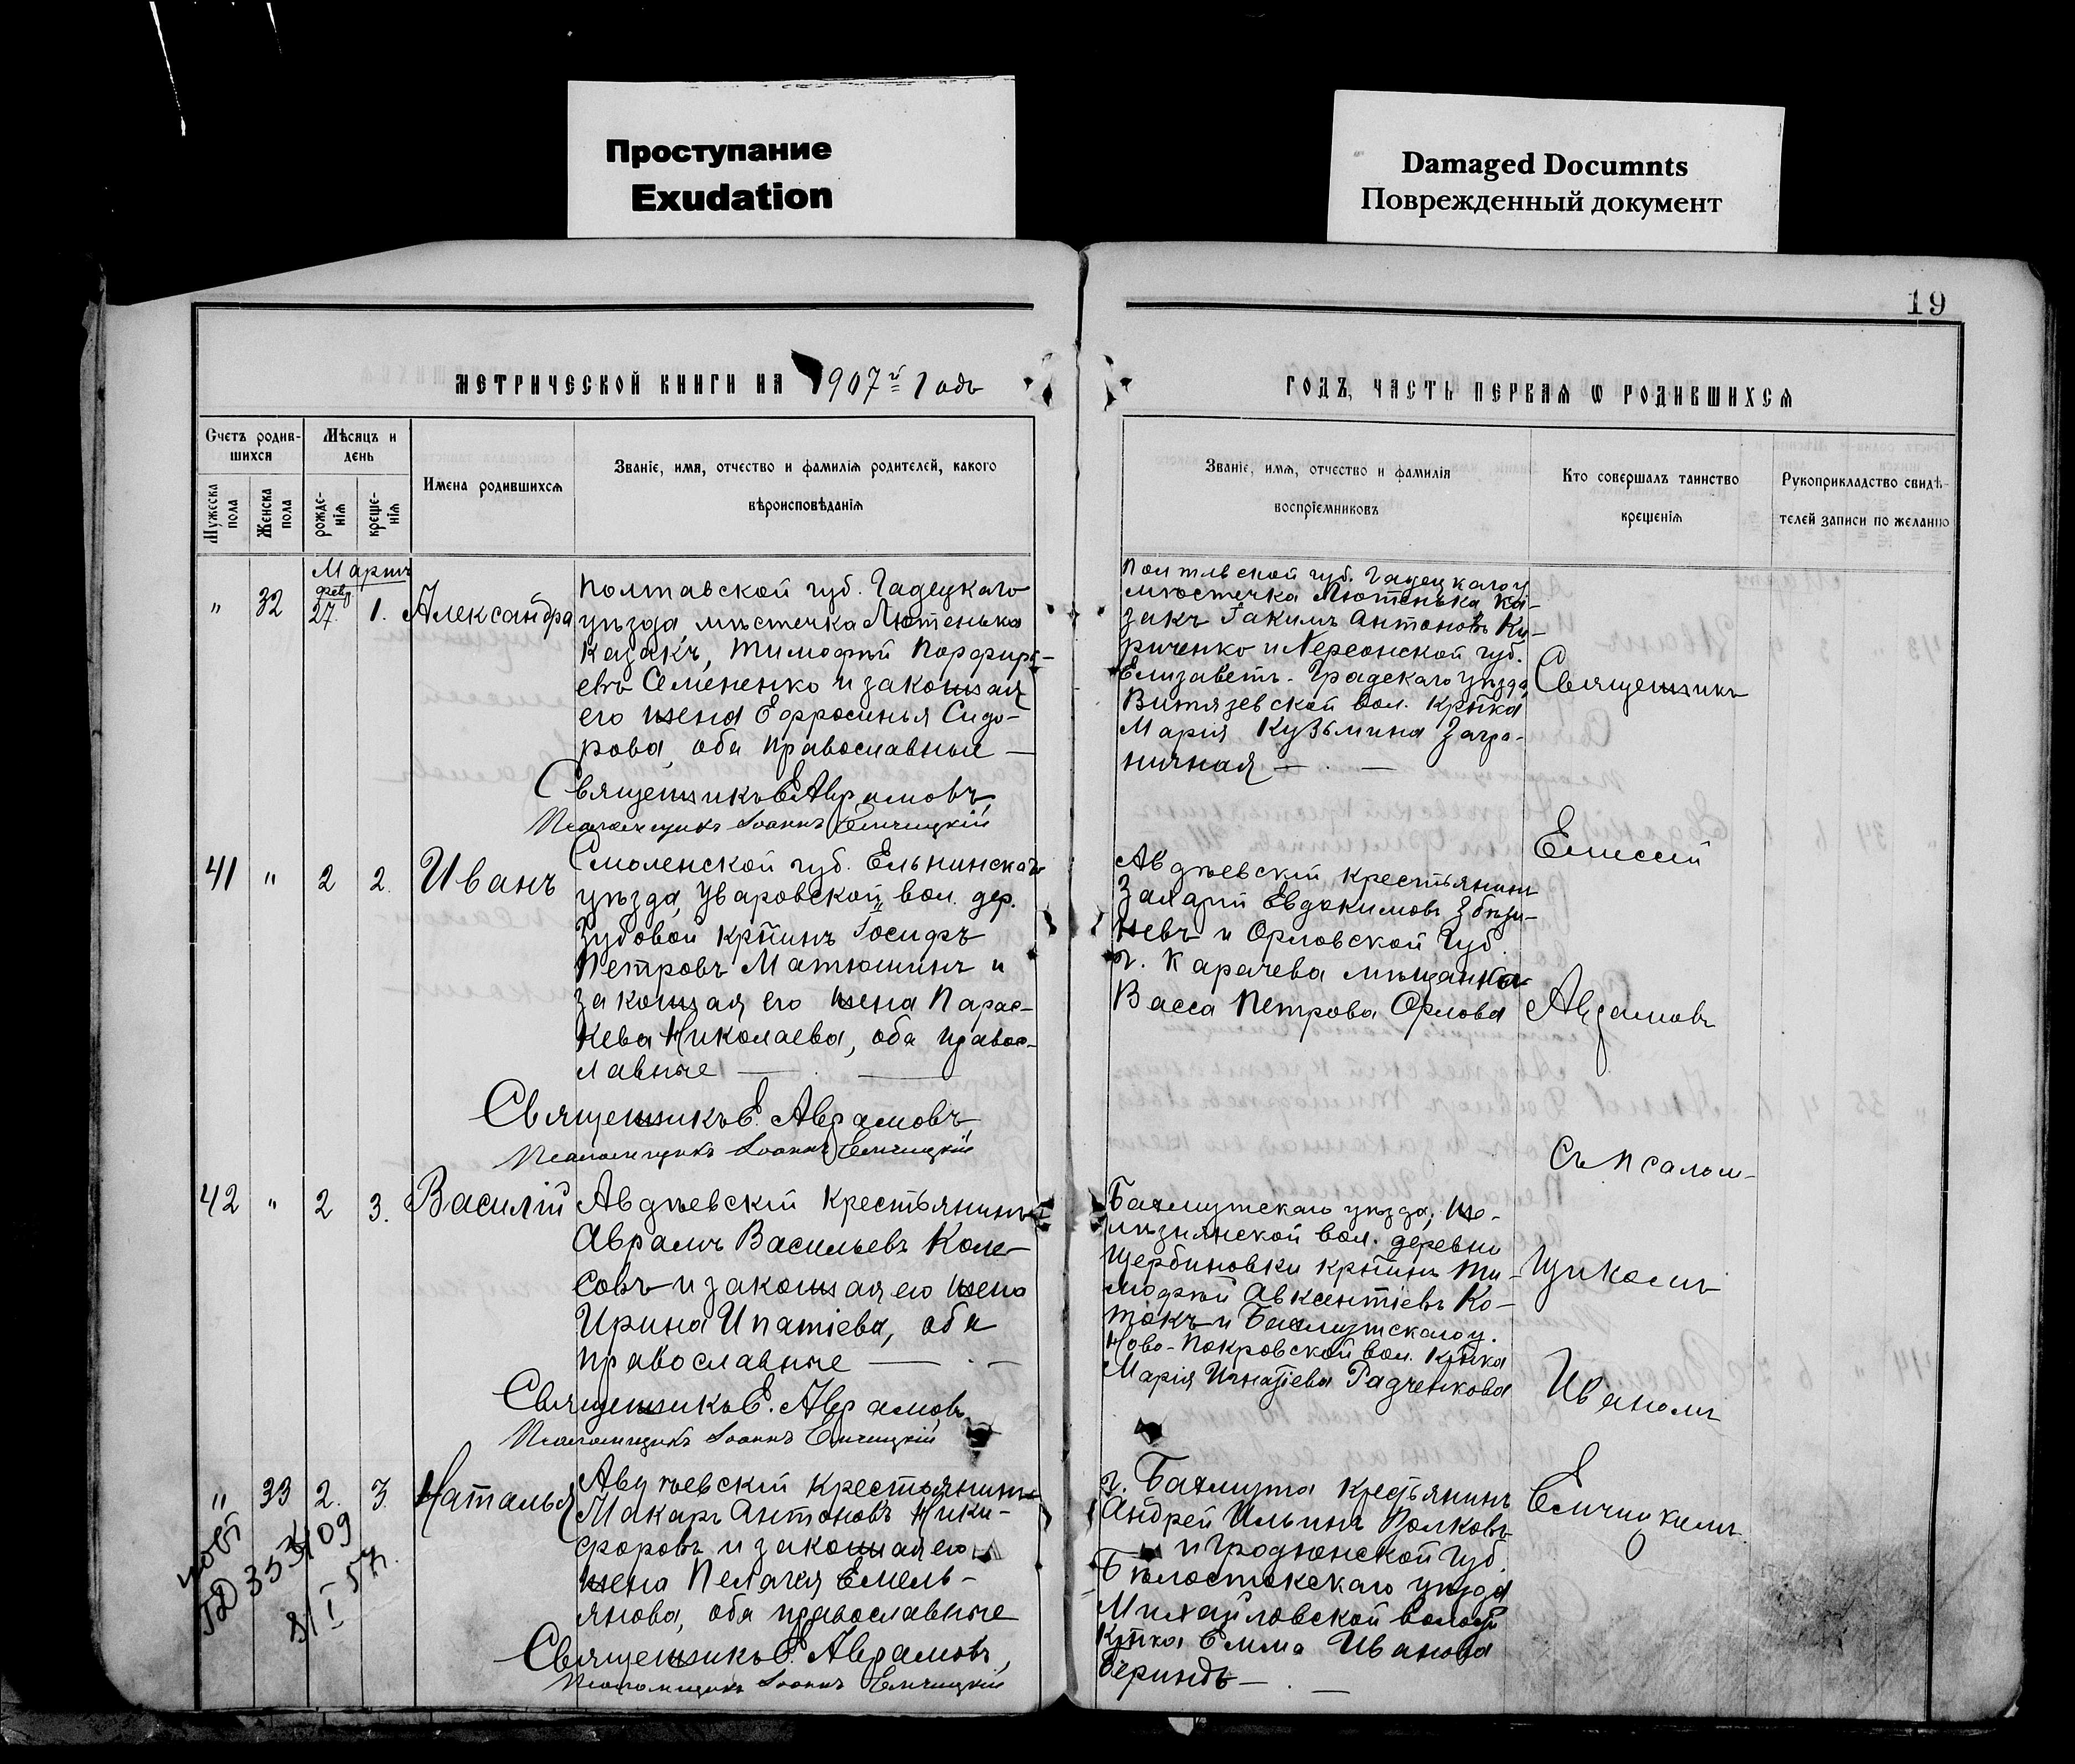 Проступание
Exudation
Damaged Documnts
Поврежденный документ
19
МЕТРИЧЕСКОЙ КНИГИ НА 1907й годъ
ГОДЪ, ЧАСТЬ ПЕРВАЯ Ѡ РОДИВШИХСЯ
Счетъ родив-
шихся
Мѣсяцъ и
день
Мужеска
пола
Женска
пола
рожде-
нія
креще-
нія
Имена родившихся
Званіе, имя, отчество и фамилія родителей, какого
вѣроисповѣданія
Званіе, имя, отчество и фамилія
воспріемниковъ
Кто совершалъ таинство
крещенія
Рукоприкладство свидѣ-
телей записи по желанію
Мартъ
" 32 февр. 27. 1. Александра
Полтавской губ. Гадецкаго
уѣзда мѣстечка Лютенька
казакъ, Тимофѣй Порфирі-
евъ Семененко и законная
его жена Ефросинья Сидо-
рова, оба православные —
Священникъ Е. Аврамовъ,
Псаломщикъ Іоаннъ Енчицкій
Полтавской губ. Гадецкаго у.
мѣстечка Лютенька ка-
закъ Іакимъ Антоновъ Ку-
риченко и Херсонской губ.
Елизавет.-Градскаго уѣзда
Витязевской вол. кр҃нка
Марія Кузьмина Загра-
ничная — . —
41 " 2 2. Иванъ
Смоленской губ. Ельнинскаго
уѣзда, Уваровской вол. дер.
Зубовой кр҃нинъ Іосифъ
Петровъ Матюшинъ и
законная его жена Парас-
кева Николаева, оба правос-
лавные — . —
Священникъ Е. Аврамовъ,
Псаломщикъ Іоаннъ Енчицкій
Авдѣевскій крестьянинъ
Захарій Евдокимовъ
и Орловской губ.
г. Карачева мѣщанка
Васса Петрова Орлова
42 " 2 3. Василій
Авдѣевскій крестьянинъ
Аврамъ Васильевъ Коле-
совъ и законная его жена
Ирина Ипатіева, оба
православные — . —
Священникъ Е. Аврамовъ,
Псаломщикъ Іоаннъ Енчицкій
Бахмутскаго уѣзда, Же-
лѣзнянской вол. деревни
Щербиновки кр҃нинъ Ти-
мофѣй Авксентіевъ Ко-
токъ и Бахмутскаго у.
Ново-Покровской вол. кр҃нка
Марія Игнатіева Радченкова
" 33 2. 3. Наталья
Авдѣевскій крестьянинъ
Макаръ Антоновъ Ники-
форовъ и законная его
жена Пелагея Емель-
янова, оба православные
Священникъ Е. Аврамовъ,
Псаломщикъ Іоаннъ Енчицкій
г. Бахмута крестьянинъ
Андрей Ильинъ Волковъ
и Гродненской губ.
Бѣлостокскаго уѣзда
Михайловской волости
кр҃нка Емма Иванова
Беринд — . —
Священникъ
Елисей
Аврамовъ
Съ псалом-
щикомъ
Иваномъ
Енчицкимъ